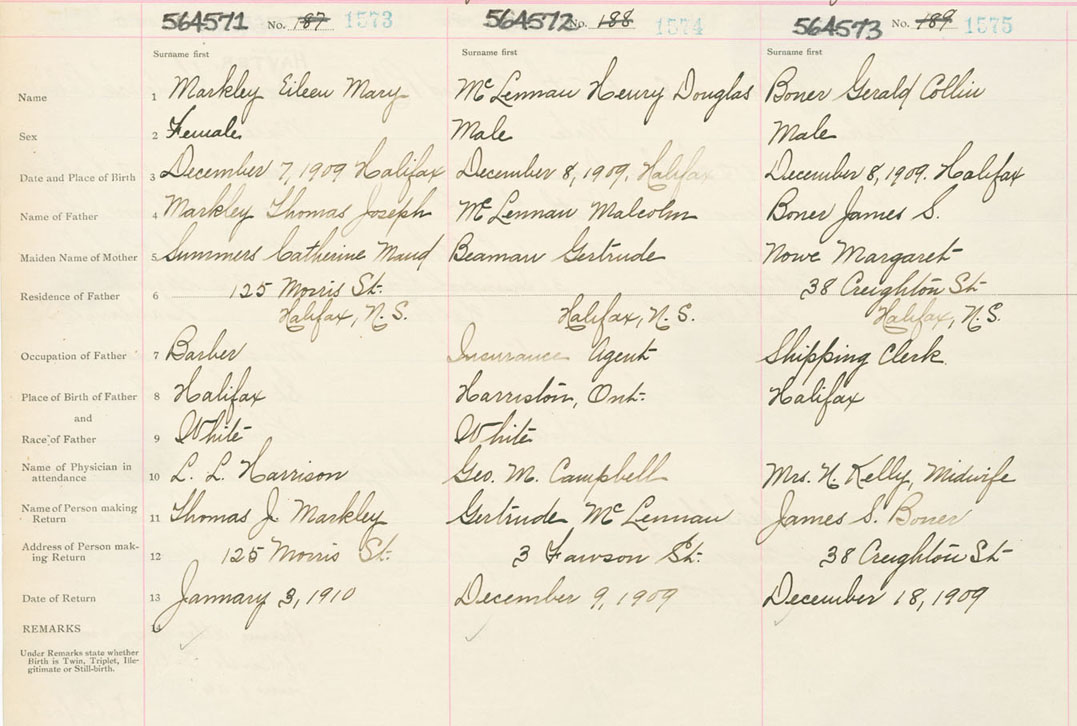 564571 No. 187 1573 564572 No. 188 1574 564573 No. 189 1575
Surname first Surname first Surname first
Name 1 Markley Eileen Mary McLennan Henry Douglas Boner Gerald Collin
Sex 2 Female Male Male
Date and Place of Birth 3 December 7, 1909 Halifax December 8, 1909. Halifax December 8, 1909. Halifax
Name of Father 4 Markley Thomas Joseph McLennan Malcolm Boner James S.
Maiden Name of Mother 5 Summers Catherine Maud Beaman Gertrude Nowe Margaret
Residence of Father 6 125 Morris St. 38 Creighton St.
Halifax, N.S. Halifax, N.S. Halifax, N.S.
Occupation of Father 7 Barber Insurance Agent Shipping Clerk
Place of Birth of Father 8 Halifax Harriston, Ont. Halifax
and
Race of Father 9 White White
Name of Physician in
attendance 10 L. L. Harrison Geo. M. Campbell Mrs. N. Kelly, Midwife
Name of Person making
Return 11 Thomas J. Markley Gertrude McLennan James S. Boner
Address of Person mak-
ing Return 12 125 Morris St. 3 Fawson St. 38 Creighton St
Date of Return 13 January 3, 1910 December 9, 1909 December 18, 1909
REMARKS 14
Under Remarks state whether
Birth is Twin, Triplet, Ille-
gitimate or Still-birth.